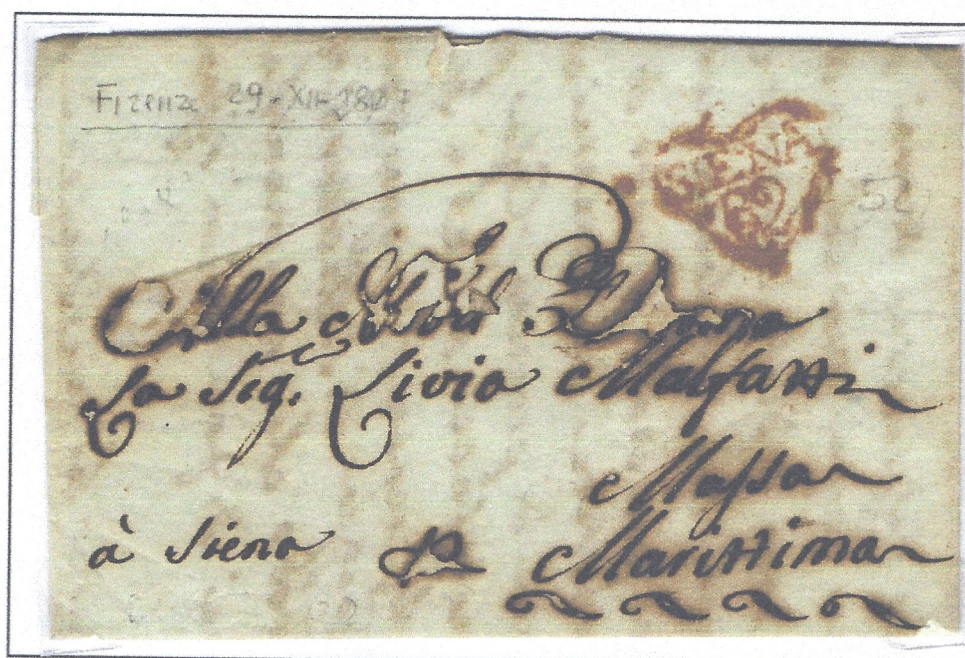 Firenze 29-XII-1817
SIENA
52
Alla Nobil Donna
La Sig. Livia Malfatti
Massa
à Siena p Marittima